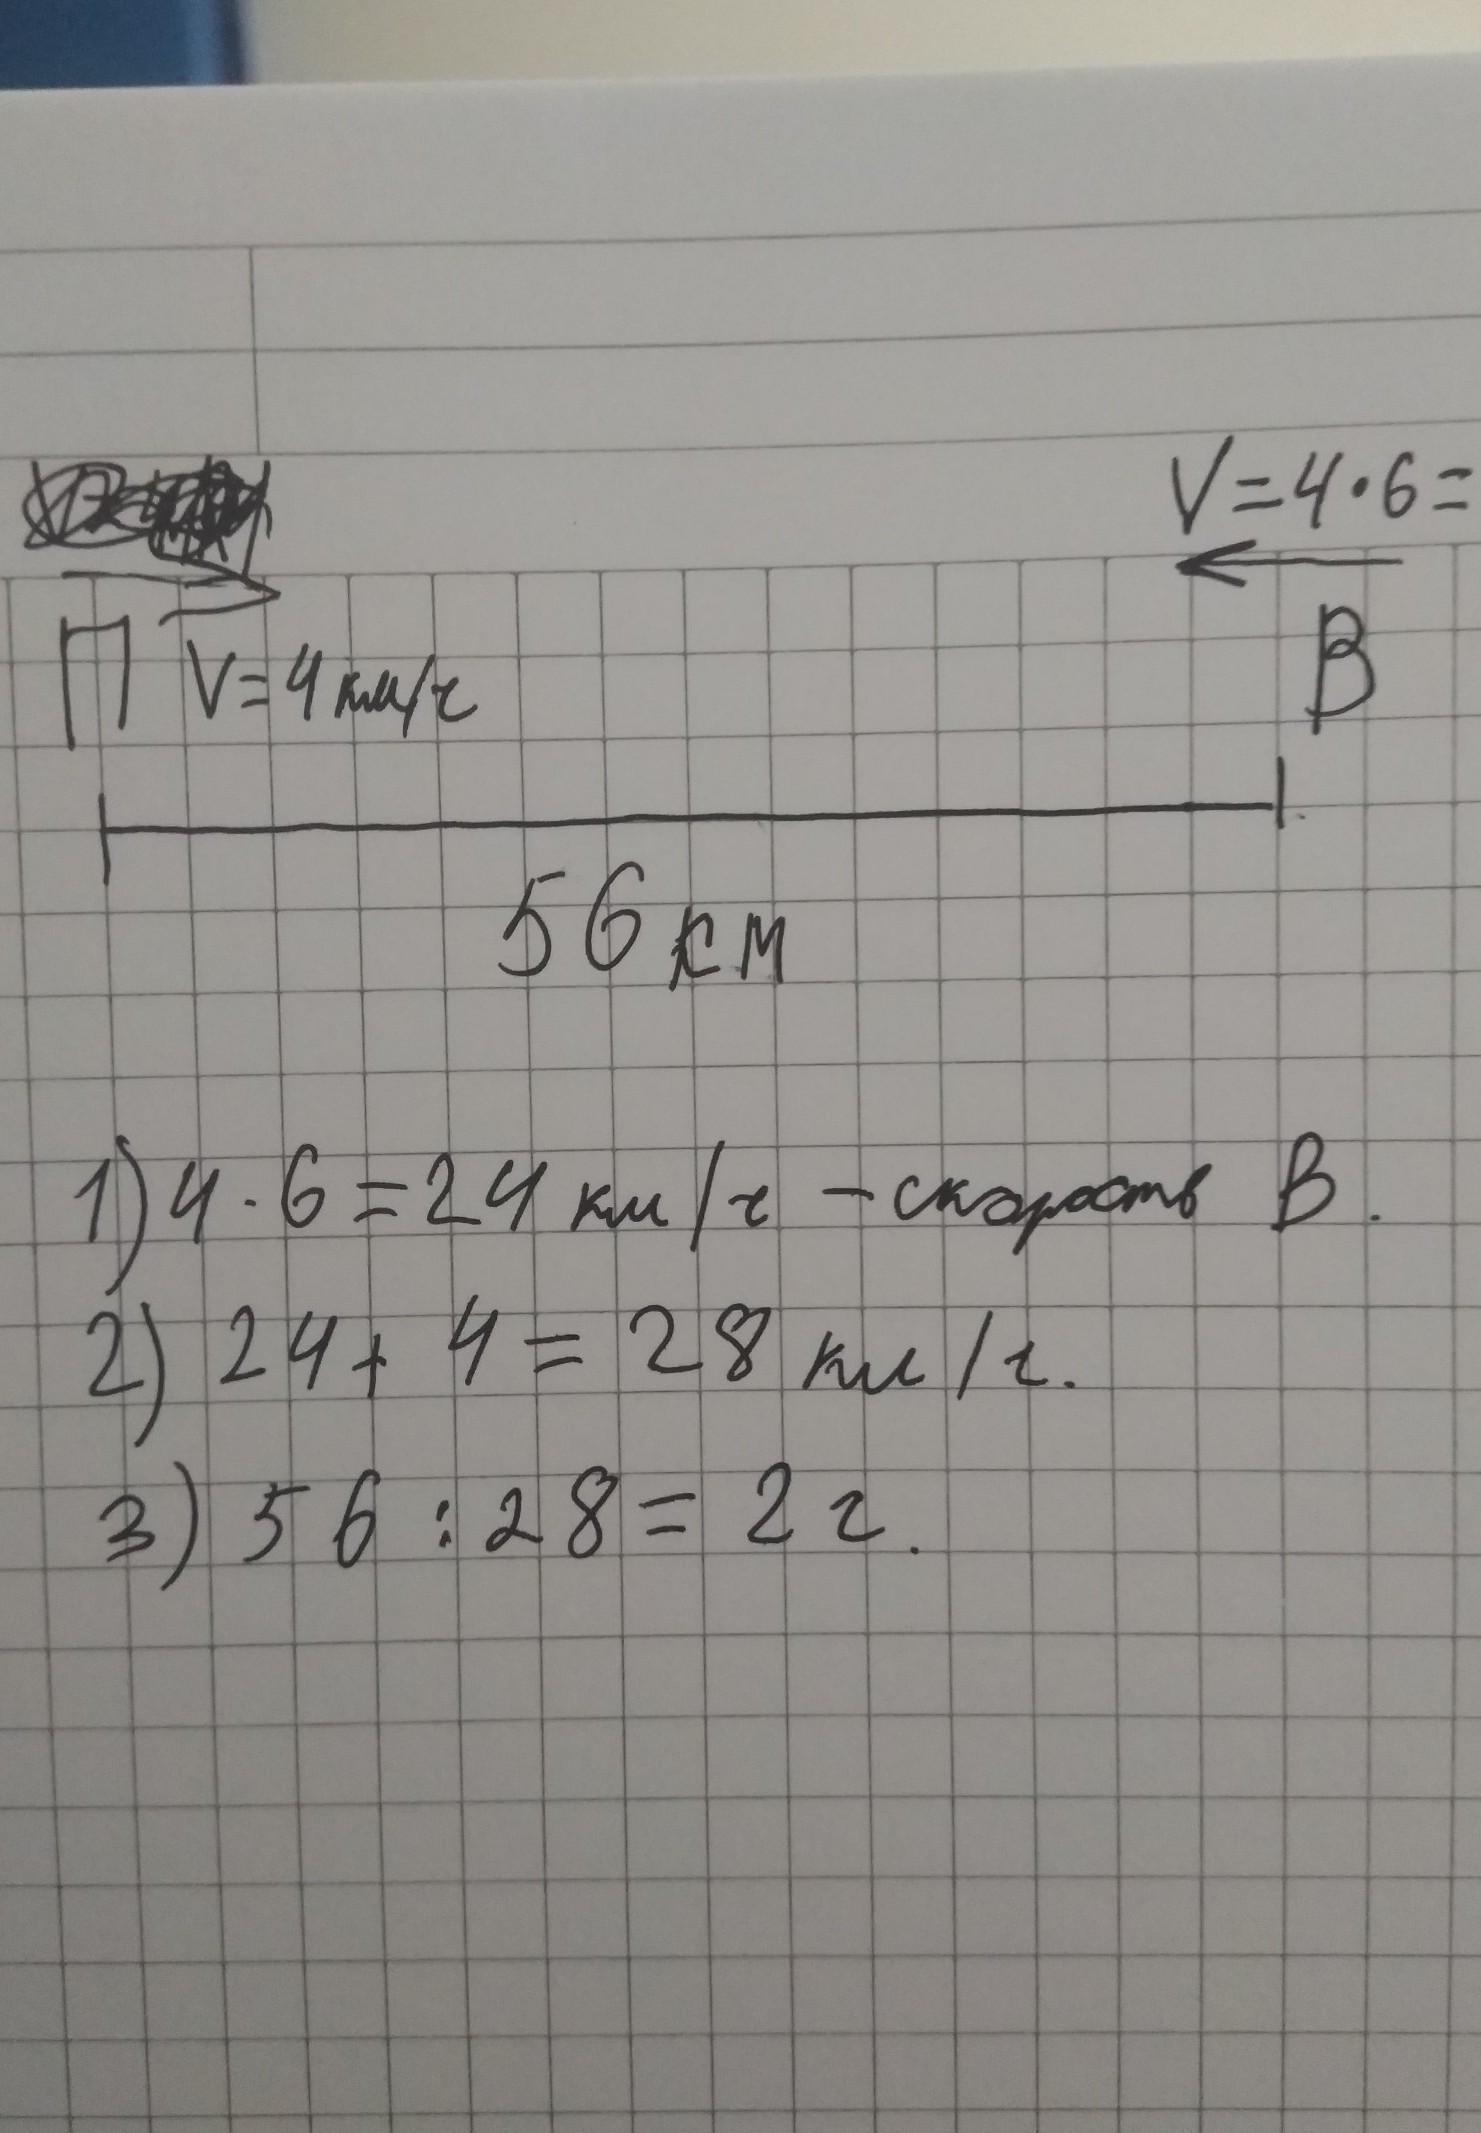 V=4·6=
П V=4км/ч
В
56км
1) 4·6=24км/ч – скорость В.
2) 24+4=28км/ч.
3) 56:28=2ч.